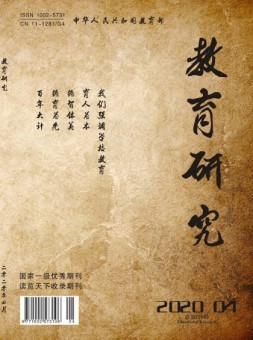 ISSN 1002-5731
CN 11-1281/G4
中华人民共和国教育部
教育研究
我们强调学校教育
育人为本
德智体美
德育为先
百年大计
教育研究
二零二零年四月
国家一级优秀期刊
读览天下收录期刊
2020 04